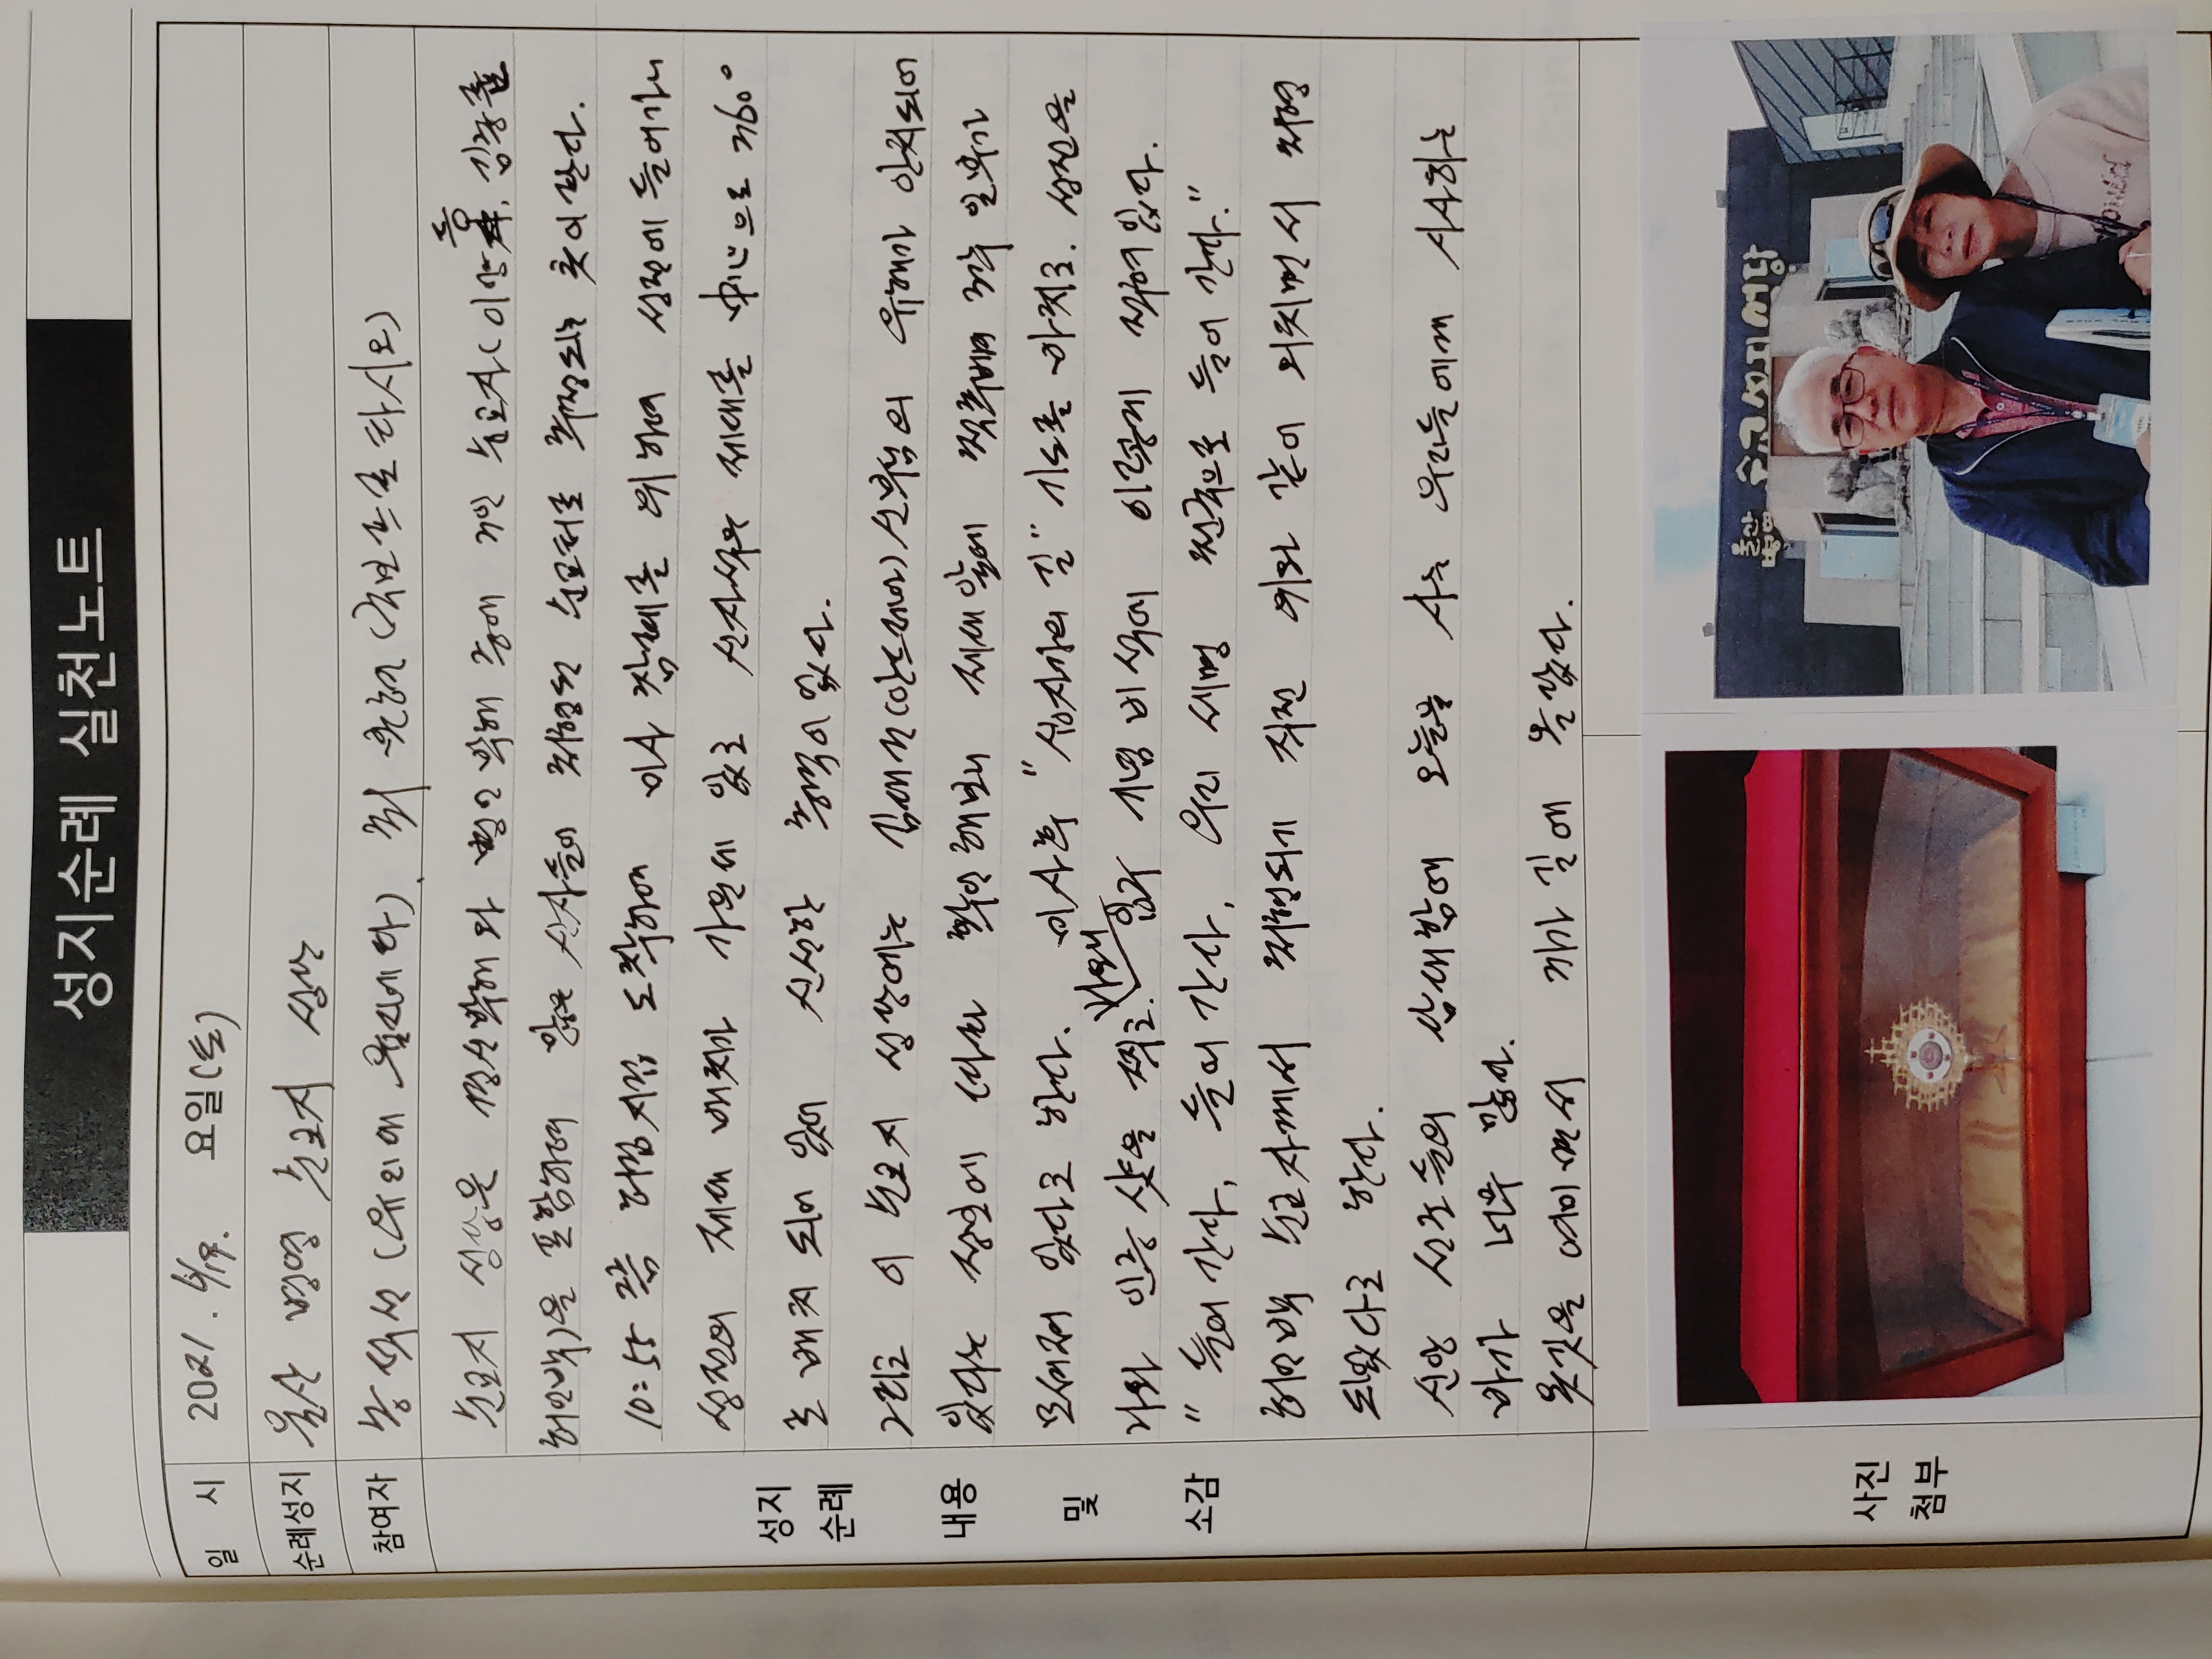 성지순례 실천노트
일 시 2021. 6/19. 요일(토)
순례성지 울산 병영 순교지 성당
참여자 송석선 (유외에 율리에타), 최 (국보프로타시오)
순교지 성당은 경신박해와 병인박해 중에 3인 순교자(이양등, 김종륜
허인백)을 포함하여 많은 신자들이 처형된 순교터로 추정되는 곳이란다.
10:55 쯤 하여 도착하여 미사 참례를 위하여 성전에 들어가니
성전의 제대 배치가 가운데 있고 신자석은 제대를 中心으로 360°
로 배치 되어 있어 신선한 충격이 었다.
그리고 이 순교지 성당에는 김대건(안드레아)신부님의 유해가 안치되어
있다는 정보에 따라 확인해보니 제대앞에 척추뼈 3번 일부가
모셔져 있다고 한다. 미사후 "십자가의 길" 기도를 마치고. 성전을
나와 인증 샷을 찍고. 나오니 입구 기념비석에 이렇게 적혀있다.
" 들어간다, 들어간다, 우리 세명 천국으로 들어 간다."
허인백 순교자께서 처형되기 직전 위와 같이 외치면서 처형
되었다고 한다.
신앙 선조들의 담대함에 오늘을 사는 우리들에게 시사하는
바가 너무 많다.
옷깃을 여미면서 귀가 길에 올랐다.
성지
순례
내용
및
소감
사진
첨부
울산
병영 순교성지성당